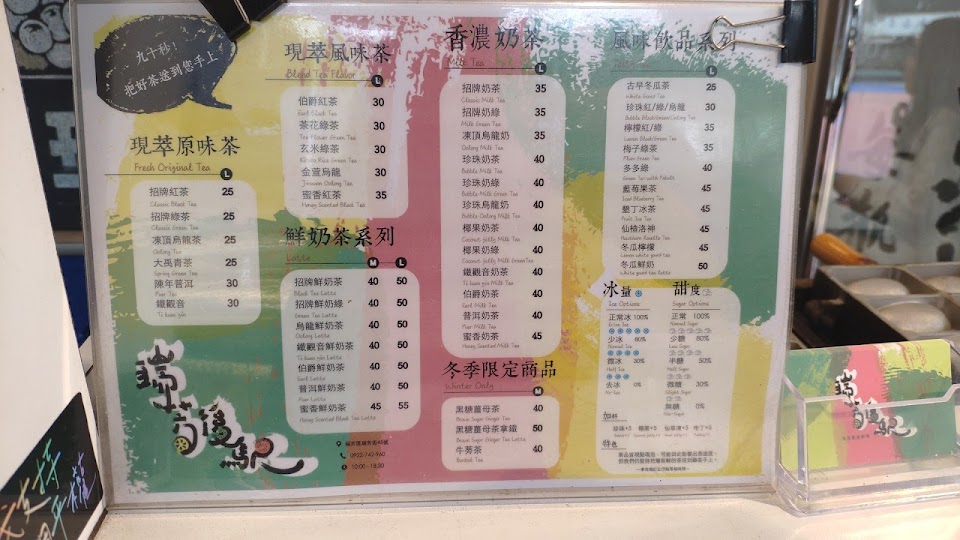 九十秒！
把好茶送到您手上
現萃原味茶
Fresh Original Tea
L
招牌紅茶 25
Classic Black Tea
招牌綠茶 25
Classic Green Tea
凍頂烏龍茶 25
Oolong Tea
大禹青茶 25
Spring Green Tea
陳年普洱 30
Puer Tea
鐵觀音 30
現萃風味茶
Blend Tea Flavor
L
伯爵紅茶 30
Earl Black Tea
茶花綠茶 30
Tea Flower Green Tea
玄米綠茶 30
Genmai Rice Green Tea
金萱烏龍 30
Jinxuan Oolong Tea
蜜香紅茶 35
Honey Scented Black Tea
鮮奶茶系列
Latte
M L
招牌鮮奶茶 40 50
Black Tea Latte
招牌鮮奶綠 40 50
Green Tea Latte
烏龍鮮奶茶 40 50
Oolong Tea Latte
鐵觀音鮮奶茶 40 50
伯爵鮮奶茶 40 50
Earl Latte
普洱鮮奶茶 40 50
Puer Latte
蜜香鮮奶茶 45 55
Honey Scented Black Tea Latte
瑞芳後馹
0922-742-960
10:00-18:30
香濃奶茶
Milk Tea
L
招牌奶茶 35
Classic Milk Tea
招牌奶綠 35
Milk Green Tea
凍頂烏龍奶 35
Oolong Milk Tea
珍珠奶茶 40
Bubble Milk Tea
珍珠奶綠 40
Bubble Milk Green Tea
珍珠烏龍奶 40
Bubble Oolong Milk Tea
椰果奶茶 40
Coconut jelly Milk Tea
椰果奶綠 40
Coconut jelly Milk GreenTea
鐵觀音奶茶 40
Ti kuan yin Milk Tea
伯爵奶茶 40
Earl Milk Tea
普洱奶茶 40
Puer Milk Tea
蜜香奶茶 45
Honey Scented Milk Tea
冬季限定商品
Winter Only
黑糖薑母茶 40
Brown Sugar Ginger Tea
黑糖薑母茶拿鐵 50
Brown Sugar Ginger Tea Latte
牛蒡茶 40
Burdock Tea
風味飲品系列
L
古早冬瓜茶 25
White Gourd Tea
珍珠紅/綠/烏龍 30
Bubble Black/Green/Oolong Tea
檸檬紅/綠 35
Lemon Black/Green Tea
梅子綠茶 35
Plum Green Tea
多多綠 40
藍莓果茶 45
Iced Blueberry Tea
墾丁冰茶 45
Fruit Ice Tea
仙楂洛神 45
冬瓜檸檬 45
Lemon white gourd tea
冬瓜鮮奶 50
White gourd tea Latte
冰量
Ice Options
正常冰 100%
少冰 80%
微冰 30%
去冰 0%
甜度
Sugar Options
正常 100%
Normal Sugar
少糖 80%
Less Sugar
半糖 50%
Half Sugar
微糖 30%
Slight Sugar
無糖 0%
加料
珍珠+5 椰果+5 仙草凍+5 布丁+5
特色
瑞芳後馹